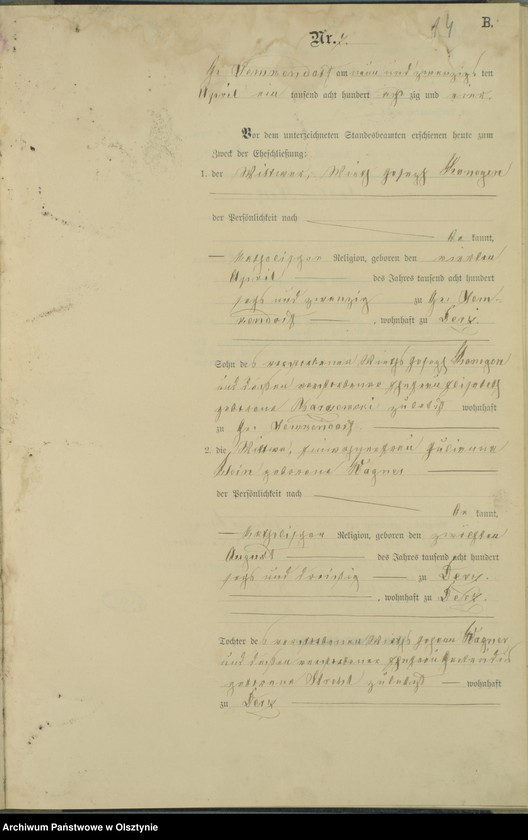 14
B.
Nr. 7.
Gr. Lemkendorf am neun und zwanzigs ten
April ein tausend acht hundert acht zig und eins
Vor dem unterzeichneten Standesbeamten erschienen heute zum
Zweck der Eheschließung:
1. der Wittwer, Wirth Joseph
der Persönlichkeit nach
be kannt,
katholischer Religion, geboren den
April des Jahres tausend acht hundert
sechs und zwanzig zu Gr. Lem-
kendorf, wohnhaft zu Derz.
Sohn des verstorbenen Wirths Joseph
und dessen verstorbene Ehefrau Elisabeth
geborene zuletzt wohnhaft
zu Gr. Lemkendorf.
2. die Wittwe, Julianna
geborene Wagner
der Persönlichkeit nach
be kannt,
katholischer Religion, geboren den zwölften
August des Jahres tausend acht hundert
sechs und dreißig zu Derz.
, wohnhaft zu Derz.
Tochter des verstorbenen Wirths Johann Wagner
und dessen verstorbene Ehefrau
geborene zuletzt wohnhaft
zu Derz
Archiwum Państwowe w Olsztynie